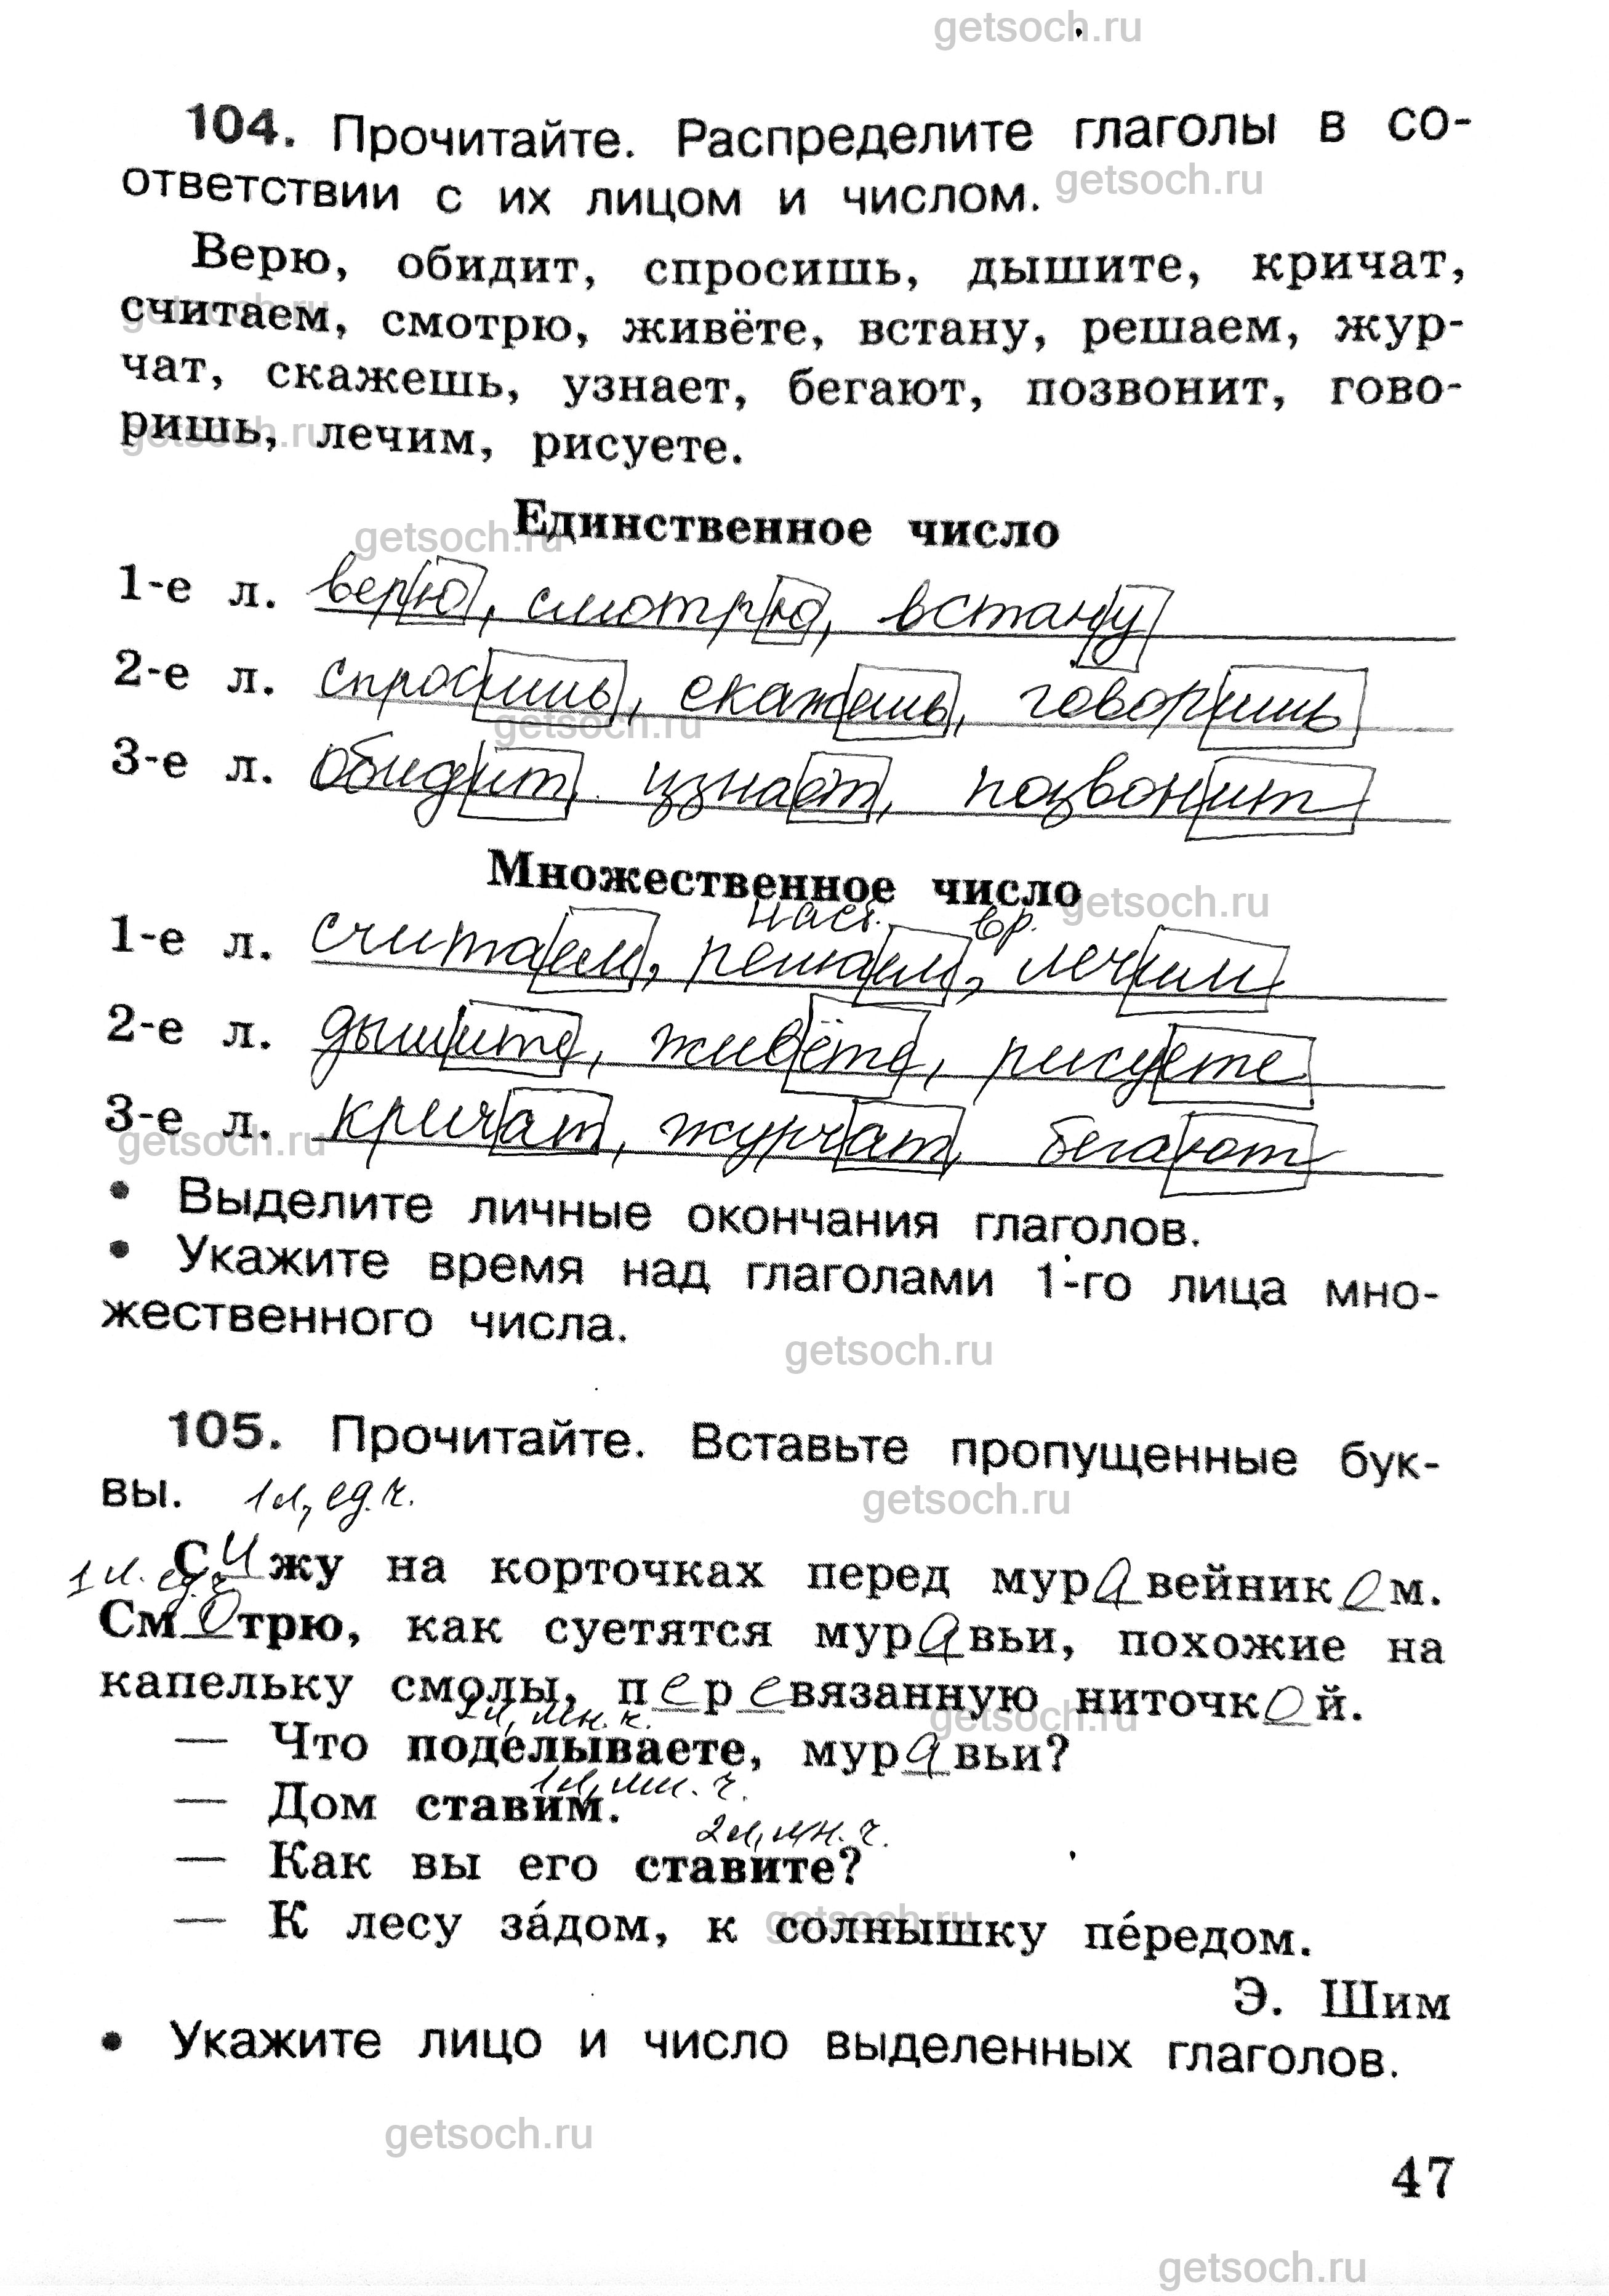 getsoch.ru
104. Прочитайте. Распределите глаголы в со-
ответствии с их лицом и числом.
getsoch.ru
Верю, обидит, спросишь, дышите, кричат,
getsoch.ru
считаем, смотрю, живёте, встану, решаем, жур-
чат, скажешь, узнает, бегают, позвонит, гово-
getsoch.ru
ришь, лечим, рисуете.
Единственное число
getsoch.ru
1-е л. верю, смотрю, встану
2-е л. спросишь, скажешь, говоришь
getsoch.ru
3-е л. обидит, узнает, позвонит
Множественное число
getsoch.ru
наст. вр.
1-е л. считаем, решаем, лечим
2-е л. дышите, живёте, рисуете
3-е л. кричат, журчат, бегают
getsoch.ru
• Выделите личные окончания глаголов.
• Укажите время над глаголами 1-го лица мно-
жественного числа.
getsoch.ru
105. Прочитайте. Вставьте пропущенные бук-
вы. 1л, ед.ч.
getsoch.ru
Сижу на корточках перед муравейником.
1л. ед.ч
Смотрю, как суетятся муравьи, похожие на
капельку смолы, перевязанную ниточкой.
getsoch.ru
2л, мн.ч.
— Что поделываете, муравьи?
1л, мн.ч.
— Дом ставим.
2л, мн.ч.
— Как вы его ставите?
getsoch.ru
— К лесу за́дом, к солнышку пе́редом.
Э. Шим
• Укажите лицо и число выделенных глаголов.
getsoch.ru
47
getsoch.ru